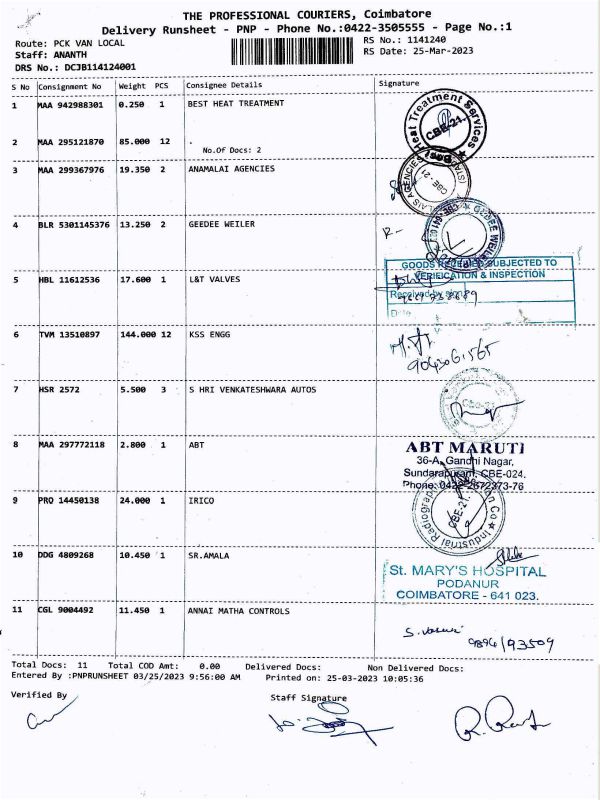 THE PROFESSIONAL COURIERS, Coimbatore
Delivery Runsheet - PNP - Phone No.:0422-3505555 - Page No.:1
Route: PCK VAN LOCAL
RS No.: 1141240
Staff: ANANTH
RS Date: 25-Mar-2023
DRS No.: DCJB114124001
S No Consignment No Weight PCS Consignee Details Signature
1 MAA 942988301 0.250 1 BEST HEAT TREATMENT
Heat Treatment Services
CBE-21.
2 MAA 295121870 85.000 12 .
No.Of Docs: 2
3 MAA 299367976 19.350 2 ANAMALAI AGENCIES
CBE - 21
4 BLR 5301145376 13.250 2 GEEDEE WEILER
R-
GOODS RECEIVED SUBJECTED TO
VERIFICATION & INSPECTION
5 HBL 11612536 17.600 1 L&T VALVES
Received by sign
Date
6 TVM 13510897 144.000 12 KSS ENGG
7 HSR 2572 5.500 3 S HRI VENKATESHWARA AUTOS
8 MAA 297772118 2.800 1 ABT
ABT MARUTI
36-A, Gandhi Nagar,
Sundarapuram, CBE-024.
Phone: 0422-2672373-76
9 PRO 14450138 24.000 1 IRICO
Industrial Radiography
Co
CBE-21.
10 DDG 4809268 10.450 1 SR.AMALA
St. MARY'S HOSPITAL
PODANUR
COIMBATORE - 641 023.
11 CGL 9004492 11.450 1 ANNAI MATHA CONTROLS
Total Docs: 11 Total COD Amt: 0.00 Delivered Docs: Non Delivered Docs:
Entered By :PNPRUNSHEET 03/25/2023 9:56:00 AM Printed on: 25-03-2023 10:05:36
Verified By
Staff Signature